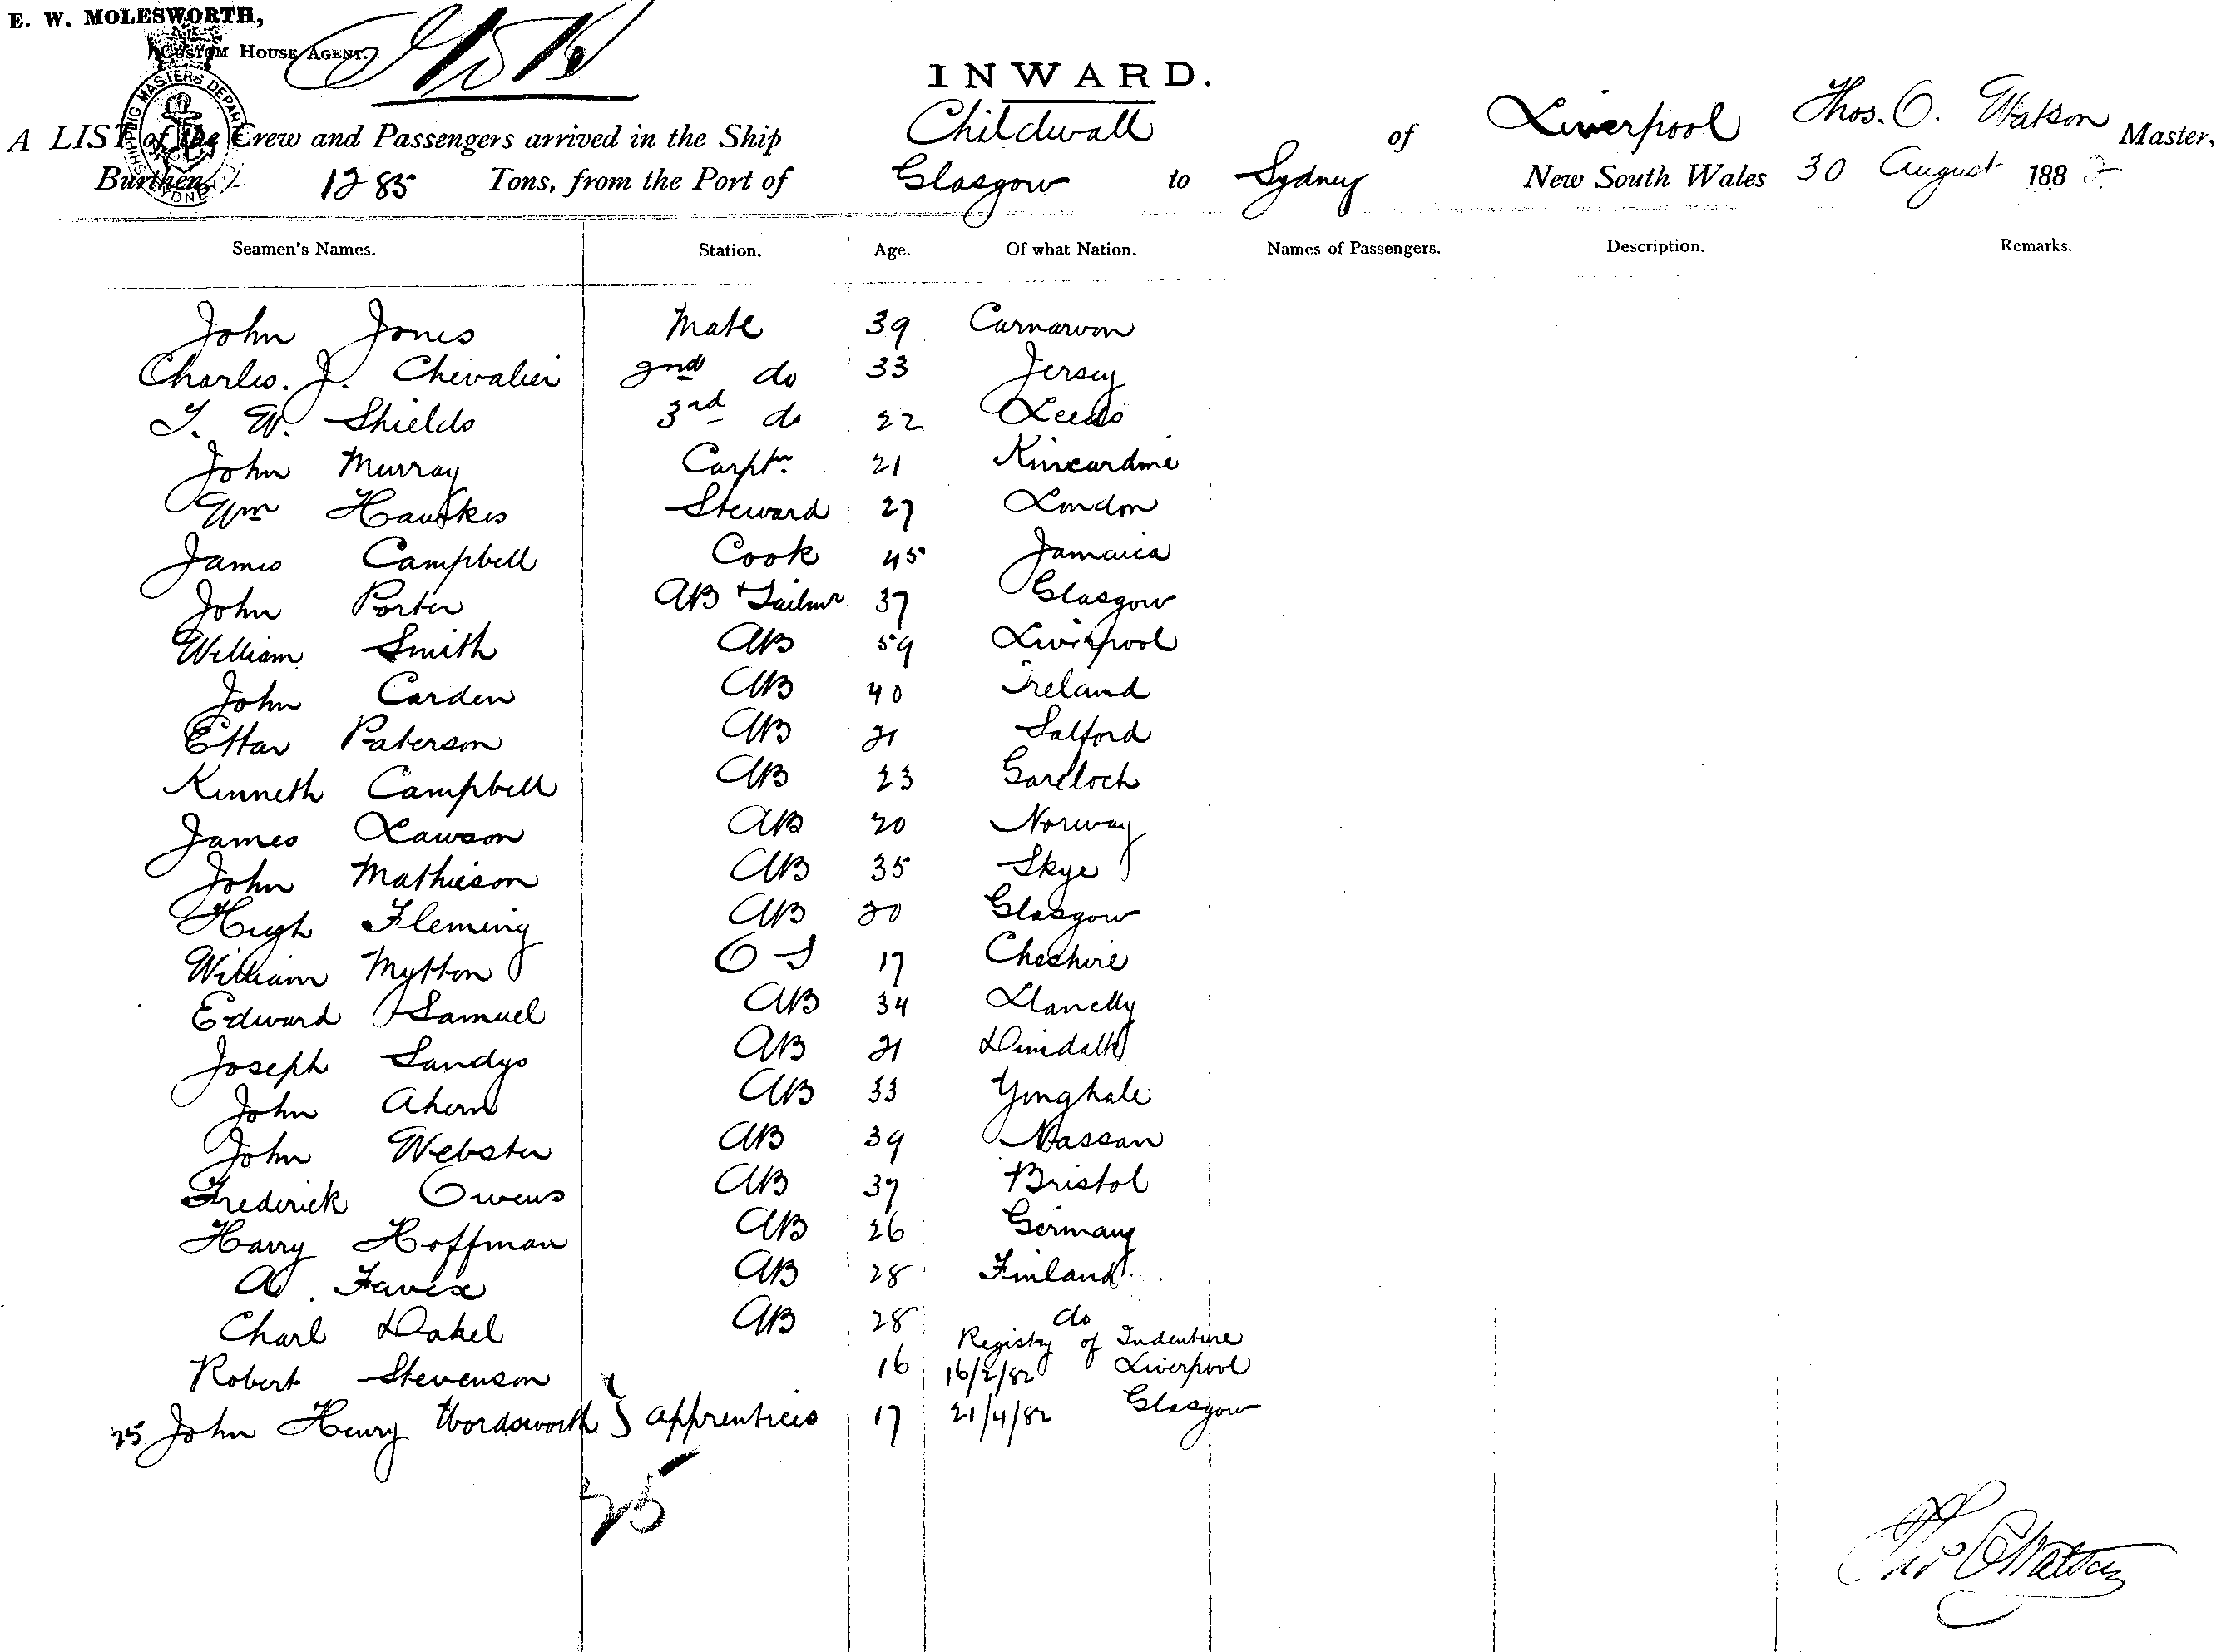 E. W. MOLESWORTH,
CUSTOM HOUSE AGENT.
SHIPPING MASTERS DEPAR SYDNEY
INWARD.
A LIST of the Crew and Passengers arrived in the Ship Childwall of Liverpool Thos. O. Watson Master,
Burthen 1285 Tons, from the Port of Glasgow to Sydney New South Wales 30 August 1882
Seamen's Names. Station. Age. Of what Nation. Names of Passengers. Description. Remarks.
John Jones Mate 39 Carnarvon
Charles. J. Chevalier 2nd do 33 Jersey
T. W. Shields 3rd do 22 Leeds
John Murray Carptr. 21 Kincardine
Wm Hawkes Steward 27 London
James Campbell Cook 45 Jamaica
John Porter AB + Sailmr 37 Glasgow
William Smith AB 59 Liverpool
John Carden AB 40 Ireland
Paterson AB 21 Salford
Kenneth Campbell AB 23 Gareloch
James Lawson AB 20 Norway
John Mathieson AB 35 Skye
Hugh Fleming AB 20 Glasgow
William Mytton O S 17 Cheshire
Edward Samuel AB 34 Llanelly
Joseph Sandys AB 21 Dundalk
John Ahern AB 33 Yonghale
John Webster AB 39 Nassau
Frederick Owens AB 37 Bristol
Harry Hoffman AB 26 Germany
A. Favex AB 28 Finland
Charl Dahel AB 28 do
Registry of Indenture
Robert Stevenson 16 16/2/82 Liverpool
25 John Henry Wordsworth } apprentices 17 21/4/82 Glasgow
25
Thos O Watson